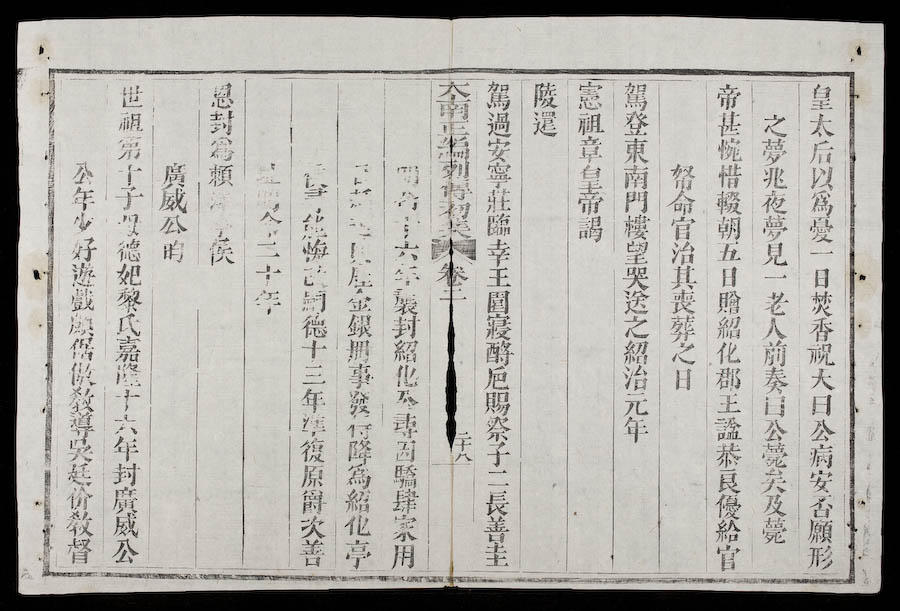 皇太后以為憂一日焚香祝大曰公病安否願形
之夢兆夜夢見一老人前奏曰公薨矣及薨
帝甚惋惜輟朝五日贈紹化郡王諡恭良優給官
帑命官治其喪葬之日
駕登東南門樓望哭送之紹治元年
憲祖章皇帝謁
陵還
駕過安寧莊臨幸王園寢酹卮賜祭子二長善圭
大南正編列傳初集 卷二 二十八
明命十六年襲封紹化公尋因驕肆家用
庫金銀冊事發 降為紹化亭
能悔 嗣德十三年準復原爵次善
明命二十年
恩封為賴 侯
廣威公昀
世祖第十子母德妃黎氏嘉隆十六年封廣威公
公年少好遊戲頗倨傲教導吳廷价教督